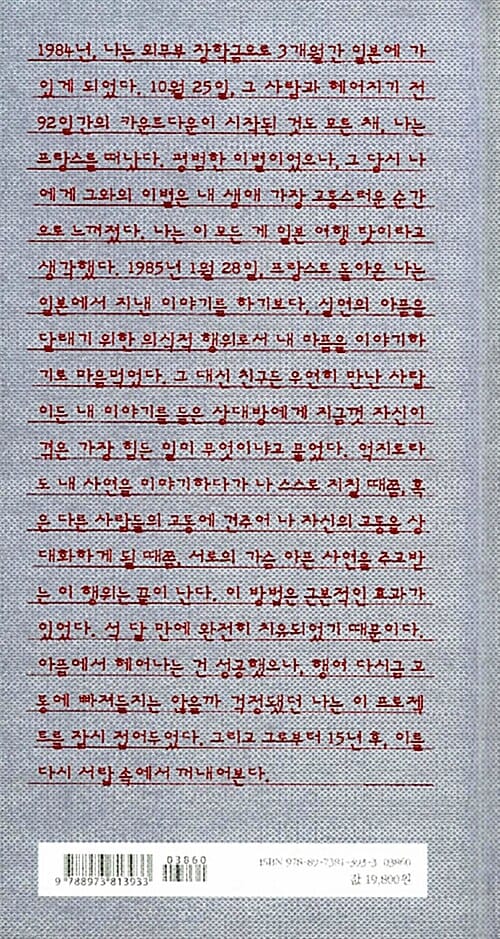 1984년, 나는 외무부 장학금으로 3개월간 일본에 가
있게 되었다. 10월 25일, 그 사람과 헤어지기 전
92일간의 카운트다운이 시작된 것도 모른 채, 나는
프랑스를 떠났다. 평범한 이별이었으나, 그 당시 나
에게 그와의 이별은 내 생애 가장 고통스러운 순간
으로 느껴졌다. 나는 이 모든 게 일본 여행 탓이라고
생각했다. 1985년 1월 28일, 프랑스로 돌아온 나는
일본에서 지낸 이야기를 하기보다, 실연의 아픔을
달래기 위한 의식적 행위로서 내 아픔을 이야기하
기로 마음먹었다. 그 대신 친구든 우연히 만난 사람
이든 내 이야기를 들은 상대방에게 지금껏 자신이
겪은 가장 힘든 일이 무엇이냐고 물었다. 억지로라
도 내 사연을 이야기하다가 나 스스로 지칠 때쯤, 혹
은 다른 사람들의 고통에 견주어 나 자신의 고통을 상
대화하게 될 때쯤, 서로의 가슴 아픈 사연을 주고받
는 이 행위는 끝이 난다. 이 방법은 근본적인 효과가
있었다. 석 달 만에 완전히 치유되었기 때문이다.
아픔에서 헤어나는 건 성공했으나, 행여 다시금 고
통에 빠져들지는 않을까 걱정됐던 나는 이 프로젝
트를 잠시 접어두었다. 그리고 그로부터 15년 후, 이를
다시 서랍 속에서 꺼내어본다.
03860
9 788973 813933
ISBN 978-89-7381-393-3 03860
값 19,800원